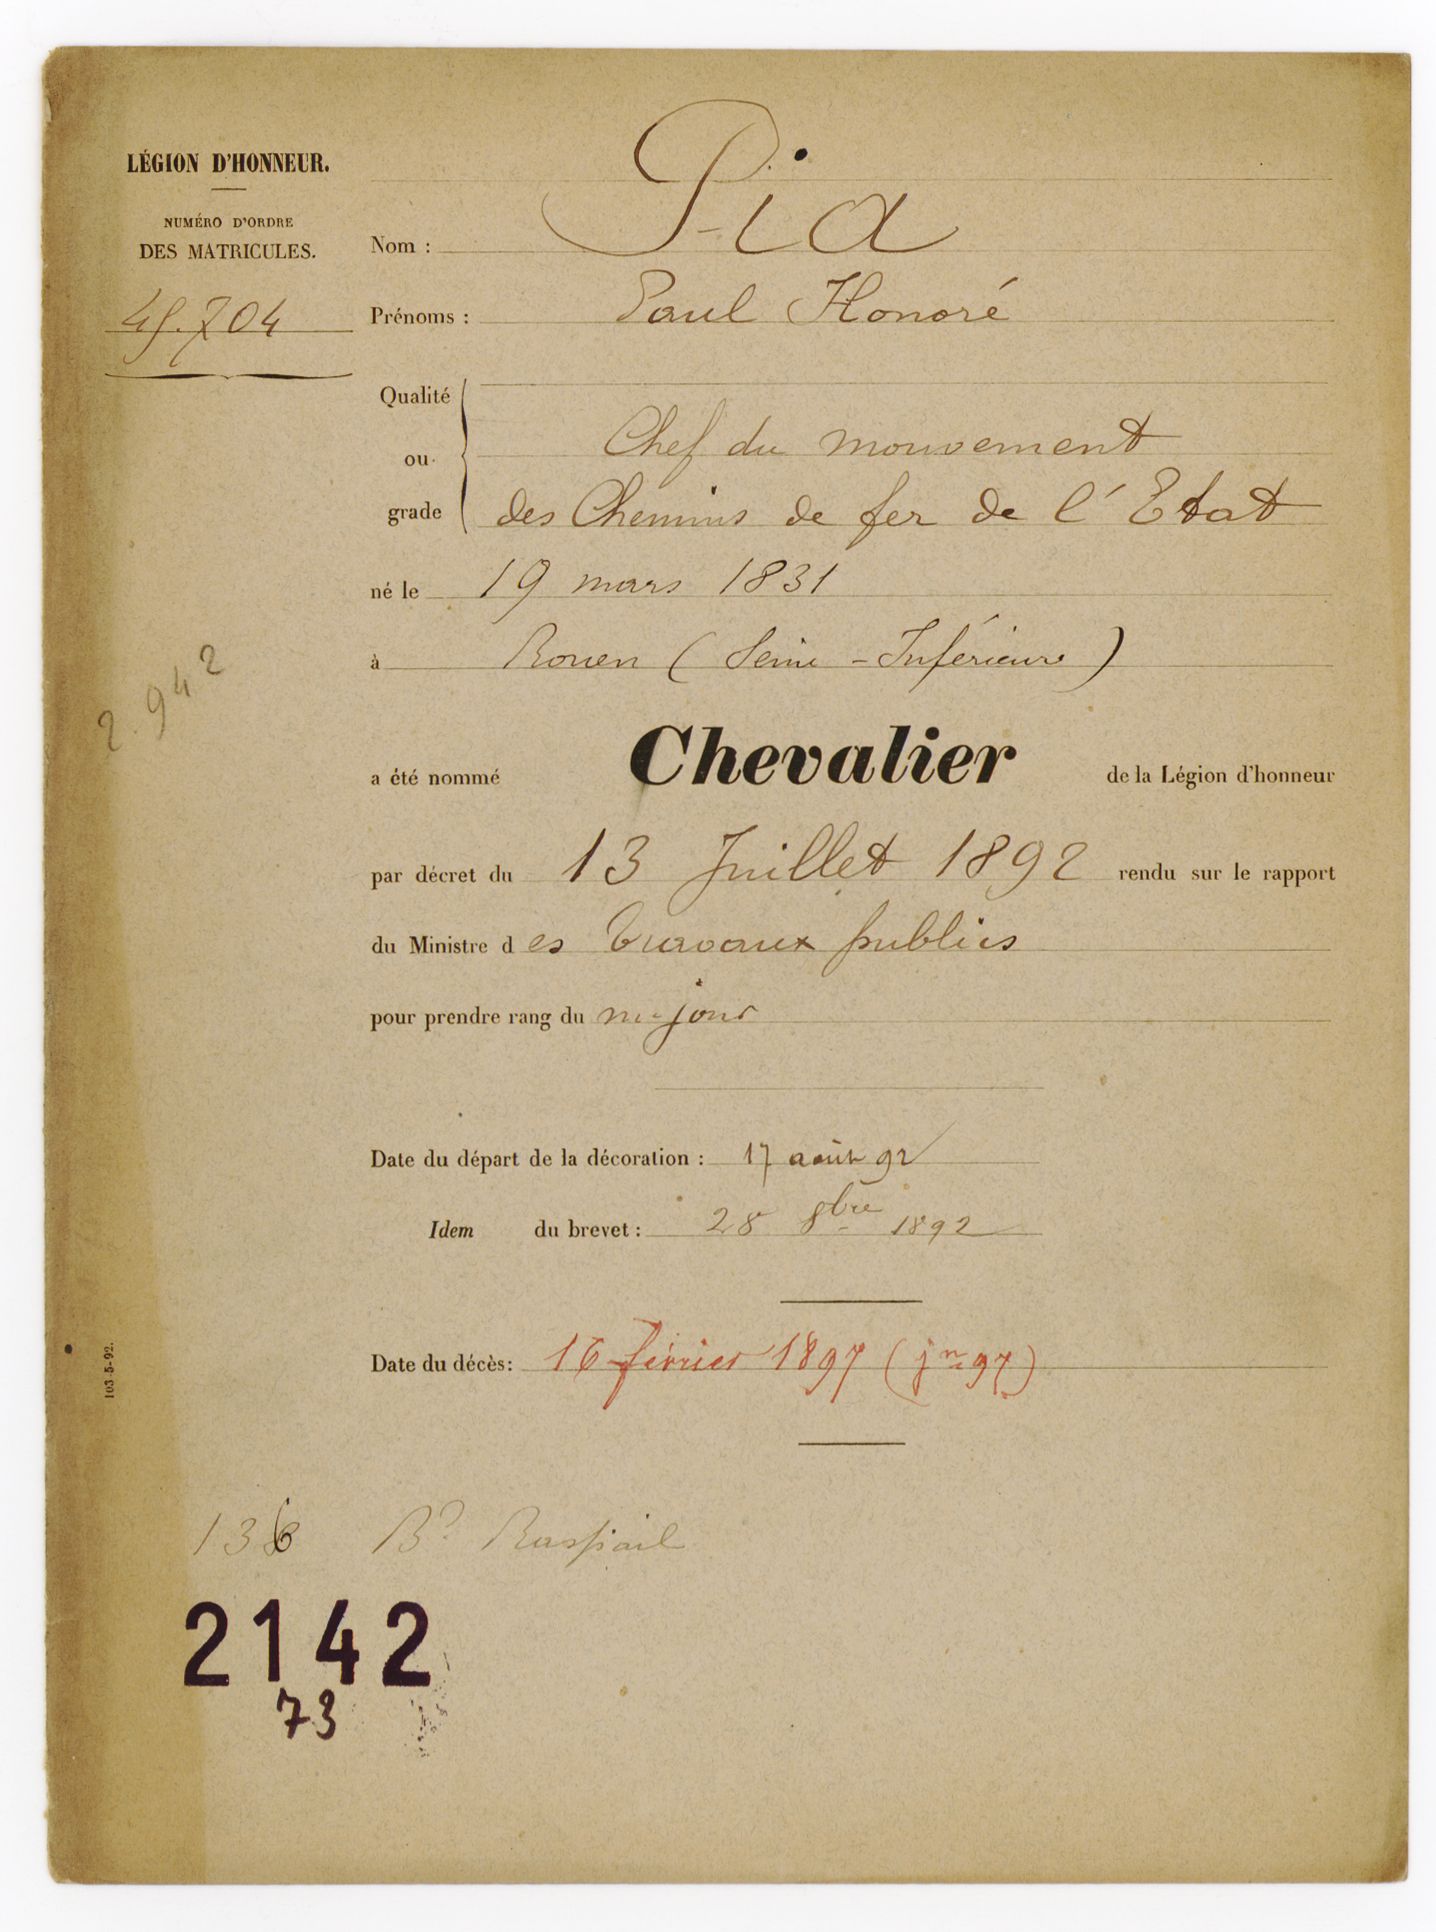 LÉGION D'HONNEUR.
NUMÉRO D'ORDRE
DES MATRICULES.
45.704
Nom : Pia
Prénoms : Paul Honoré
Qualité
ou
grade
Chef du mouvement
des Chemins de fer de l'Etat
né le 19 mars 1831
à Rouen (Seine-Inférieure)
2.942
a été nommé Chevalier de la Légion d'honneur
par décret du 13 Juillet 1892 rendu sur le rapport
du Ministre des travaux publics
pour prendre rang du m. jour
Date du départ de la décoration : 17 août 92
Idem du brevet : 28 8bre 1892
Date du décès : 16 février 1897 (jn 97)
103-5-92.
136 Bd Raspail
2142
73